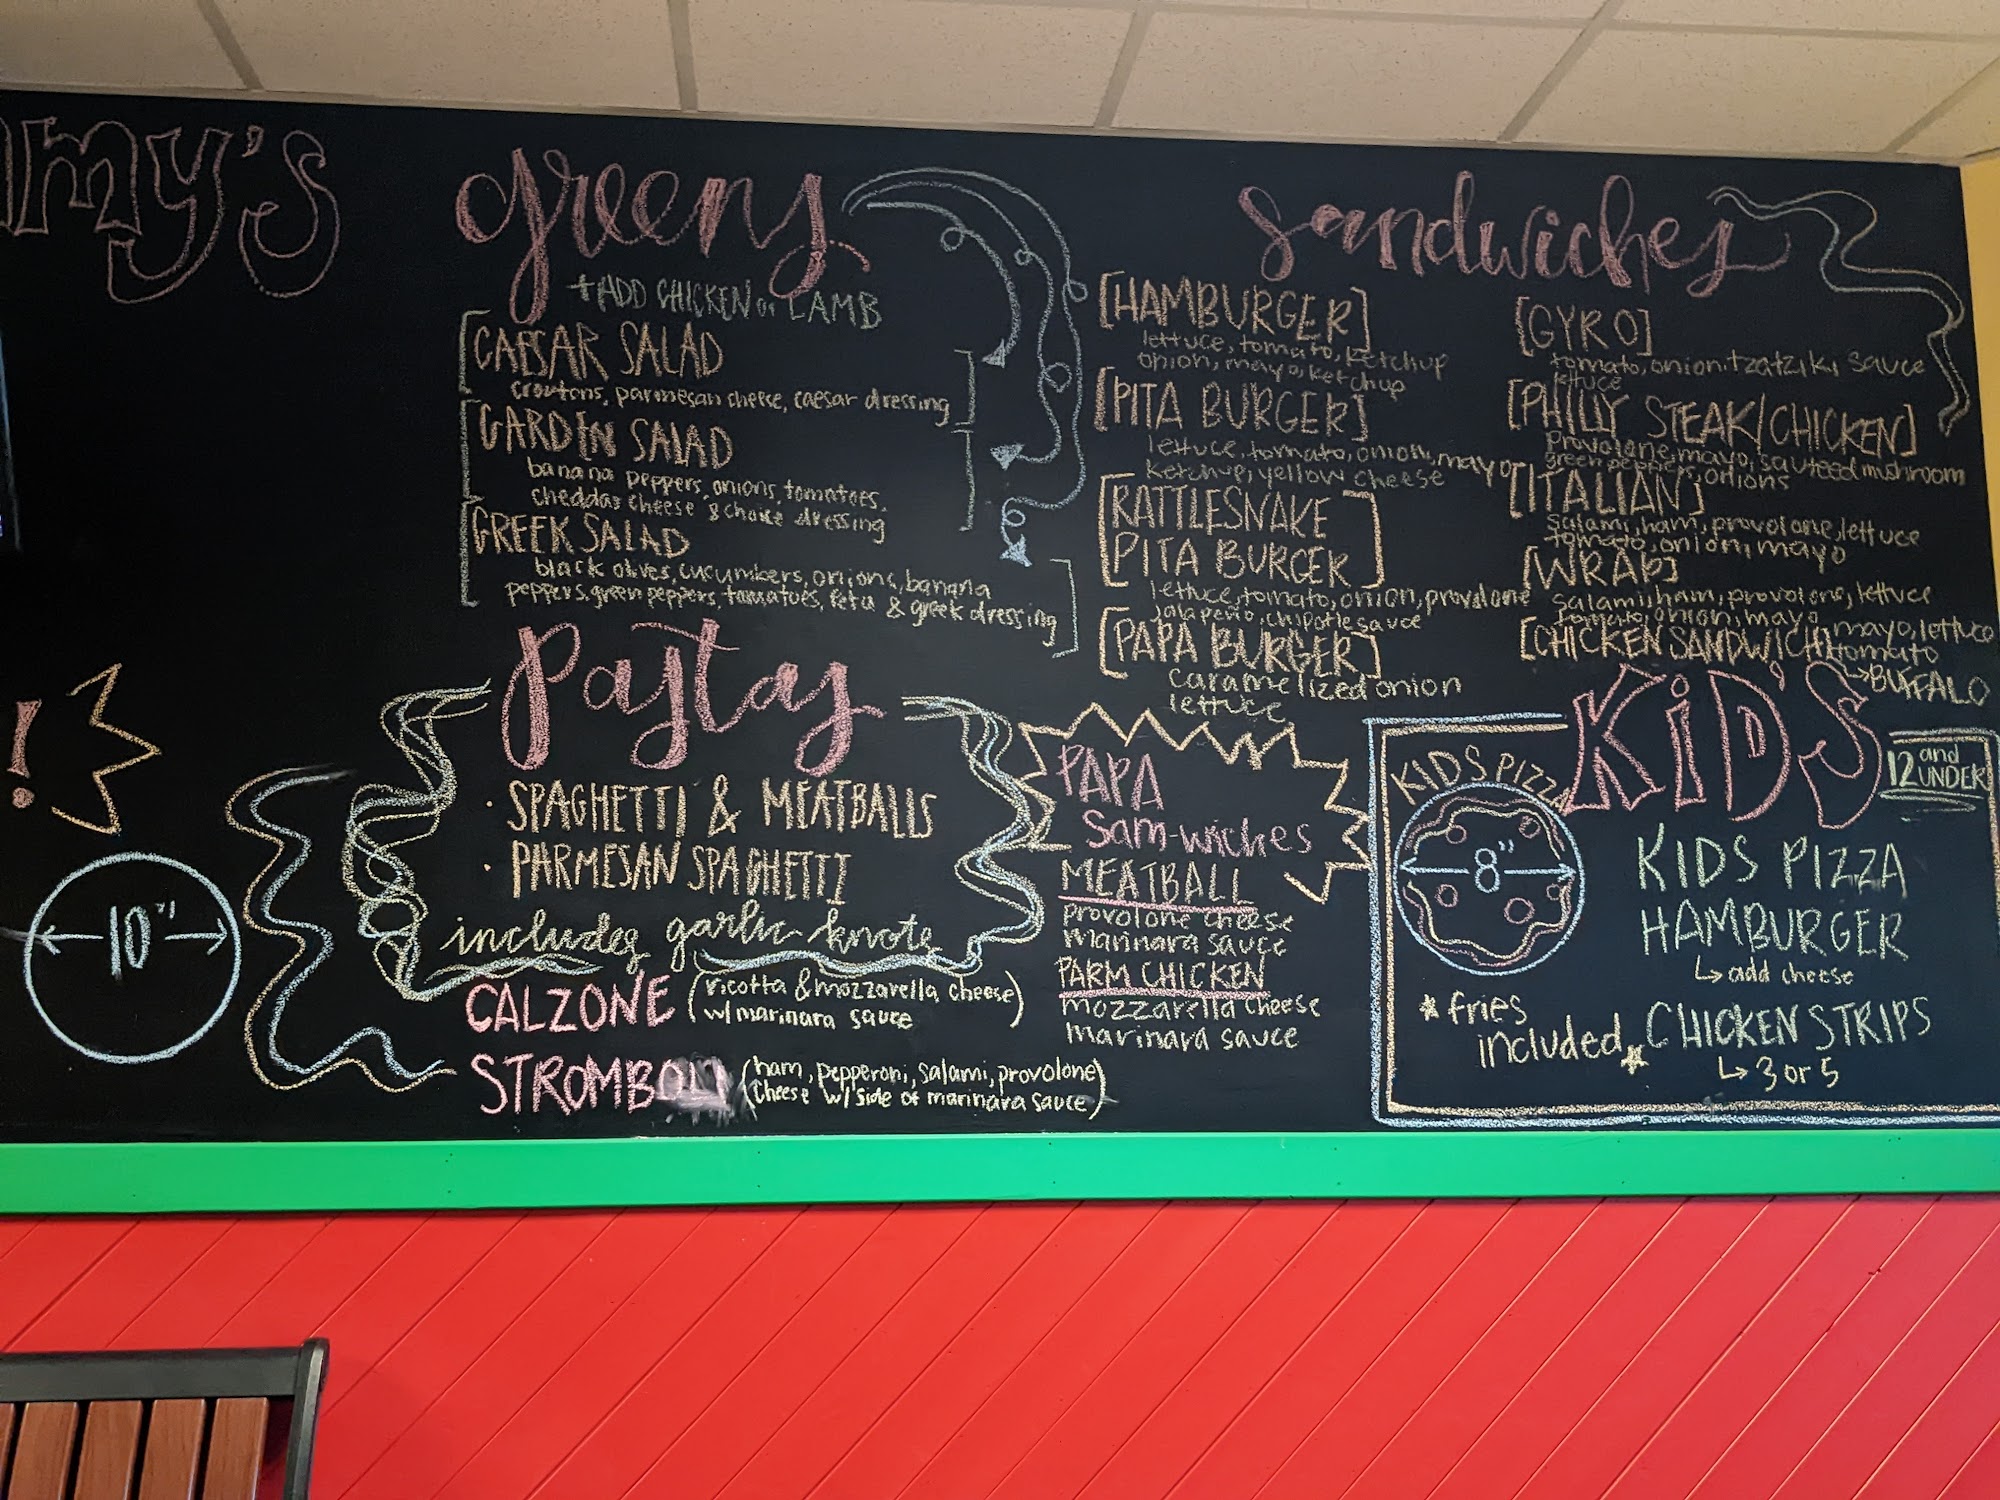 my's
greens
+ADD CHICKEN or LAMB
CAESAR SALAD
croutons, parmesan cheese, caesar dressing
GARDEN SALAD
banana peppers, onions, tomatoes,
cheddar cheese & choice dressing
GREEK SALAD
black olives, cucumbers, onions, banana
peppers, green peppers, tomatoes, feta & greek dressing
Pastas
· SPAGHETTI & MEATBALLS
· PARMESAN SPAGHETTI
includes garlic knots
CALZONE (ricotta & mozzarella cheese)
w/ marinara sauce
STROMBOLI (ham, pepperoni, salami, provolone)
cheese w/ side of marinara sauce)
!
10"
sandwiches
[HAMBURGER]
lettuce, tomato, ketchup
onion, mayo, ketchup
[PITA BURGER]
lettuce, tomato, onion, mayo
ketchup, yellow cheese
[RATTLESNAKE
PITA BURGER]
lettuce, tomato, onion, provolone
jalapeño, chipotle sauce
[PAPA BURGER]
caramelized onion
lettuce
[GYRO]
tomato, onion, tzatziki sauce
lettuce
[PHILLY STEAK/CHICKEN]
provolone, mayo, sauteed mushroom
green peppers, onions
[ITALIAN]
salami, ham, provolone, lettuce
tomato, onion, mayo
[WRAP]
salami, ham, provolone, lettuce
tomato, onion, mayo
[CHICKEN SANDWICH] mayo, lettuce
tomato
↳BUFFALO
PAPA
Sam-wiches
MEATBALL
provolone cheese
marinara sauce
PARM CHICKEN
mozzarella cheese
marinara sauce
KiD'S
12 and UNDER
KIDS PIZZA
8"
KIDS PIZZA
HAMBURGER
↳ add cheese
*fries
included*
CHICKEN STRIPS
↳ 3 or 5